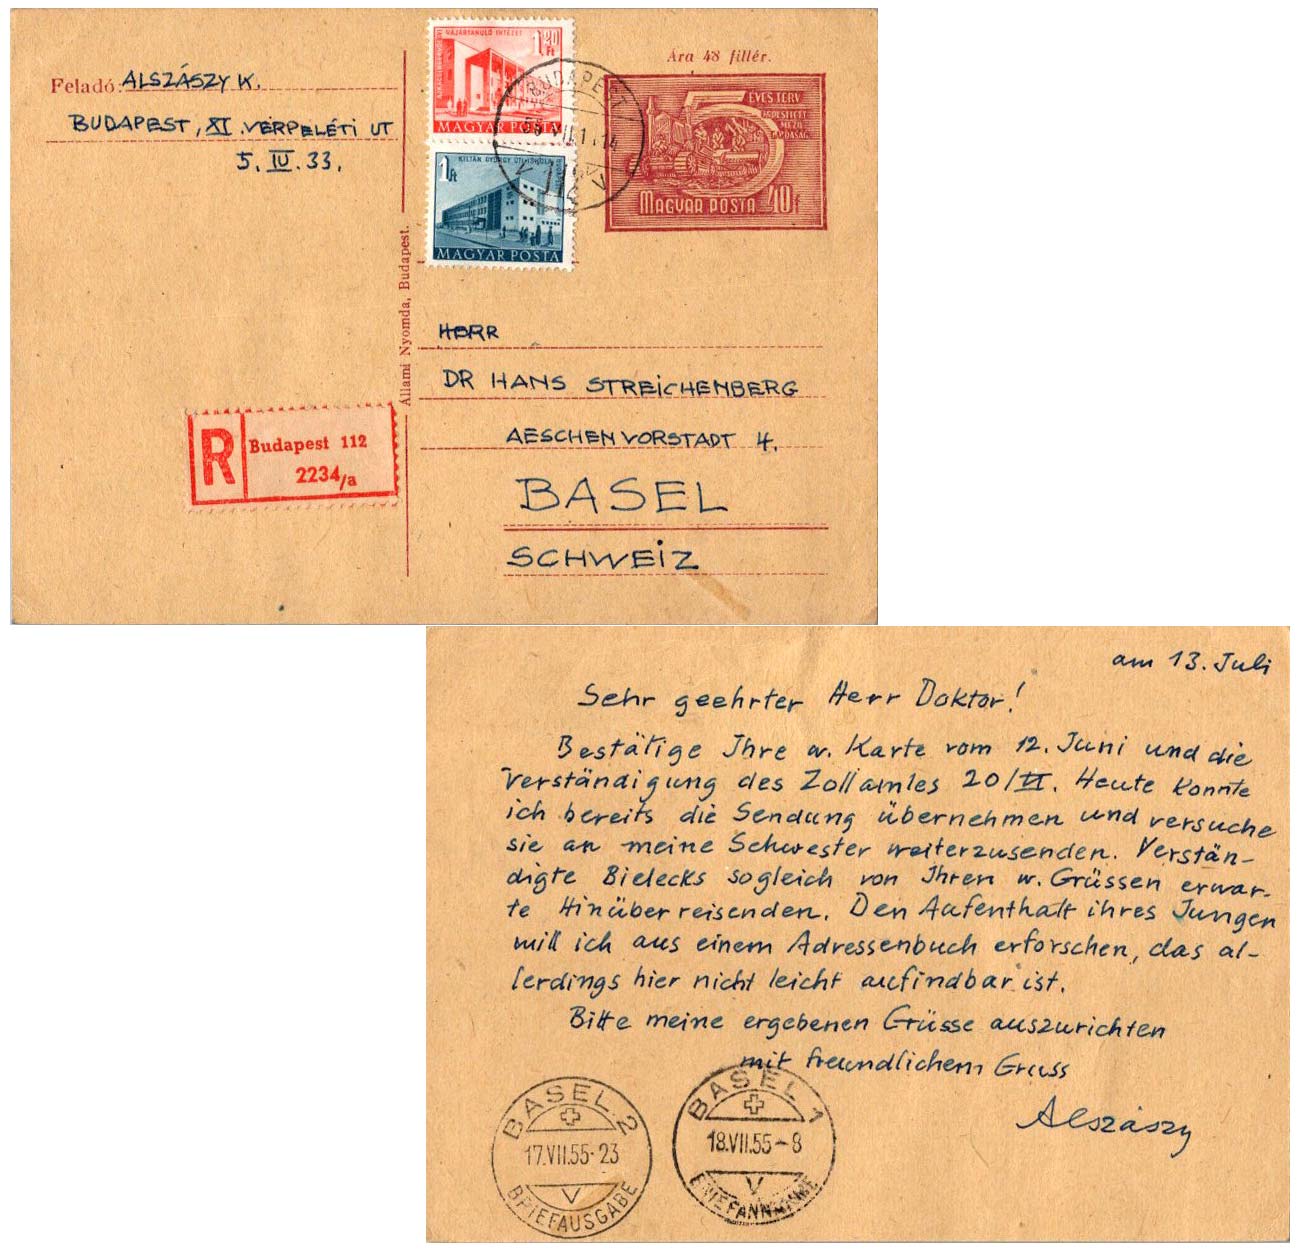 Feladó: ALSZÁSZY K.
BUDAPEST, XI. VERPELÉTI UT
5. IV. 33.
VÁJÁRTANULÓ INTÉZET
1.20 Ft
MAGYAR POSTA
KILIÁN GYÖRGY ÚTI ISKOLA
1 Ft
MAGYAR POSTA
BUDAPEST
112
Ára 48 fillér.
5 ÉVES TERV
MAGYAR POSTA 40f
Állami Nyomda, Budapest.
HERR
DR HANS STREICHENBERG
AESCHENVORSTADT 4.
BASEL
SCHWEIZ
R Budapest 112
2234/a
am 13. Juli
Sehr geehrter Herr Doktor!
Bestätige Ihre w. Karte vom 12. Juni und die
Verständigung des Zollamtes 20/VI. Heute konnte
ich bereits die Sendung übernehmen und versuche
sie an meine Schwester weiterzusenden. Verstän-
digte Bielecks sogleich von Ihren w. Grüssen erwar-
te Hinüberreisenden. Den Aufenthalt ihres Jungen
will ich aus einem Adressenbuch erforschen, das al-
lerdings hier nicht leicht aufindbar ist.
Bitte meine ergebenen Grüsse auszurichten
mit freundlichem Gruss
Alszászy
BASEL 2
17.VII.55-23
V
BRIEFAUSGABE
BASEL 1
18.VII.55-8
V
BRIEFANNAHME